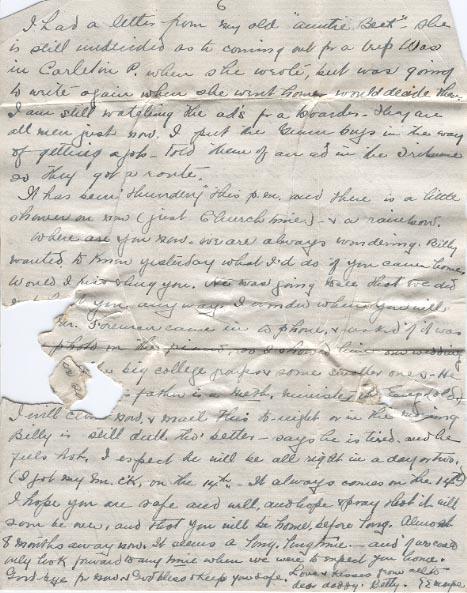 6
I had a letter from my old "auntie Beck" - she
is still undecided as to coming out for a trip. Was
in Carleton P. when she wrote, but was going
to write again when she went home & would decide then.
I am still watching the ad's for a boarder. They are
all men just now. I put the boys in the way
of getting a job - told them of an ad in the Tribune
so they got a route.
It has been thundery this p.m. and there is a little
shower on now (just Church time) - & a rainbow.
Where are you now - we are always wondering. Billy
wanted to know yesterday what I'd do if you came home
would I kiss & hug you. He was going to see that we did
you any way. I wonder where you will
Mr. Foreman came in to phone, & asked if it was
photo on the piano, so I showed him our wedding
the big college paper & some smaller ones - He
father is a meth. minister
I will close now & mail this to-night or in the morning
Billy is still dull tho' better - says he is tired and he
feels hot. I expect he will be all right in a day or two.
(I got my gm. ck. on the 14th - It always comes on the 14th)
I hope you are safe and well, and hope & pray that it will
soon be over, and that you will be home before long. Almost
8 months away now. It seems a long, long time - and
only look forward to any time when we were to expect you home.
Good bye for now & God bless & keep you safe. Love & kisses from all to
dear daddy. Betty.